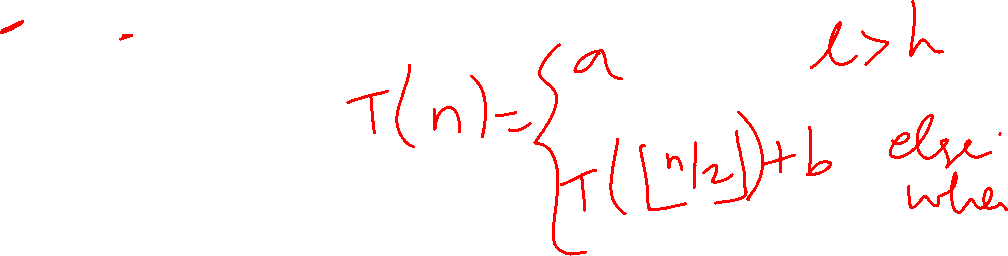 T(n) = { a l>h
T(⌊n/2⌋)+b else
whe